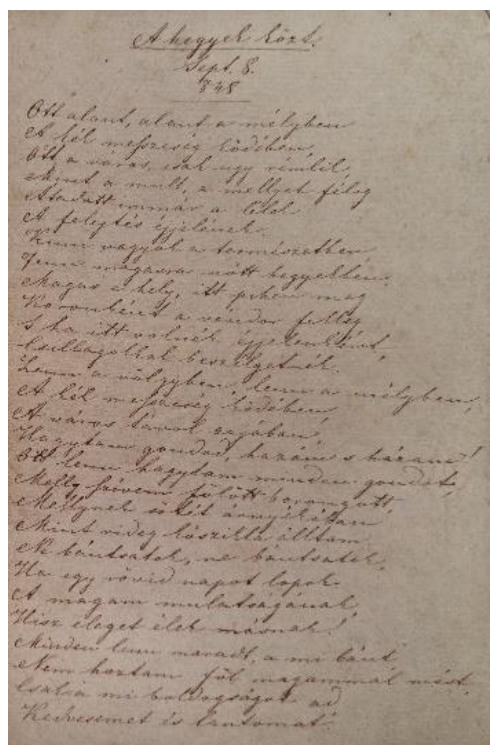 A hegyek közt.
Sept. 8.
848
Ott alant, alant a mélyben
A kék messzeség ködében,
Ott a város, csak ugy rémlik,
Mint a mult, a mellyet félig
Átadott immár a lélek
A felejtés éjjelének.
Kinn vagyok a természetben
Fenn magasra nőtt hegyekben.
Magas e hely, itt pihen meg
Koronként a vándor felleg
S ha itt volnék éjjelenként,
Csillagokkal beszélgetnék.
Lenn a völgyben, lenn a mélyben,
A kék messzeség ködében
A város távol zajában,
Hagytam gondod, hazám s házam!
Ott lenn hagytam minden gondot,
Melly szívem fölött borongott,
Mellynek sötét árnyékában
Mint rideg kőszikla álltam.
Ne bántsatok, ne bántsatok,
Ha egy rövid napot lopok
A magam mulatságának,
Hisz eleget élek másnak!
Minden lenn maradt, a mi bánt,
Nem hoztam föl magammal mást,
Csak a mi boldogságot ad
Kedvesemet és lantomat.